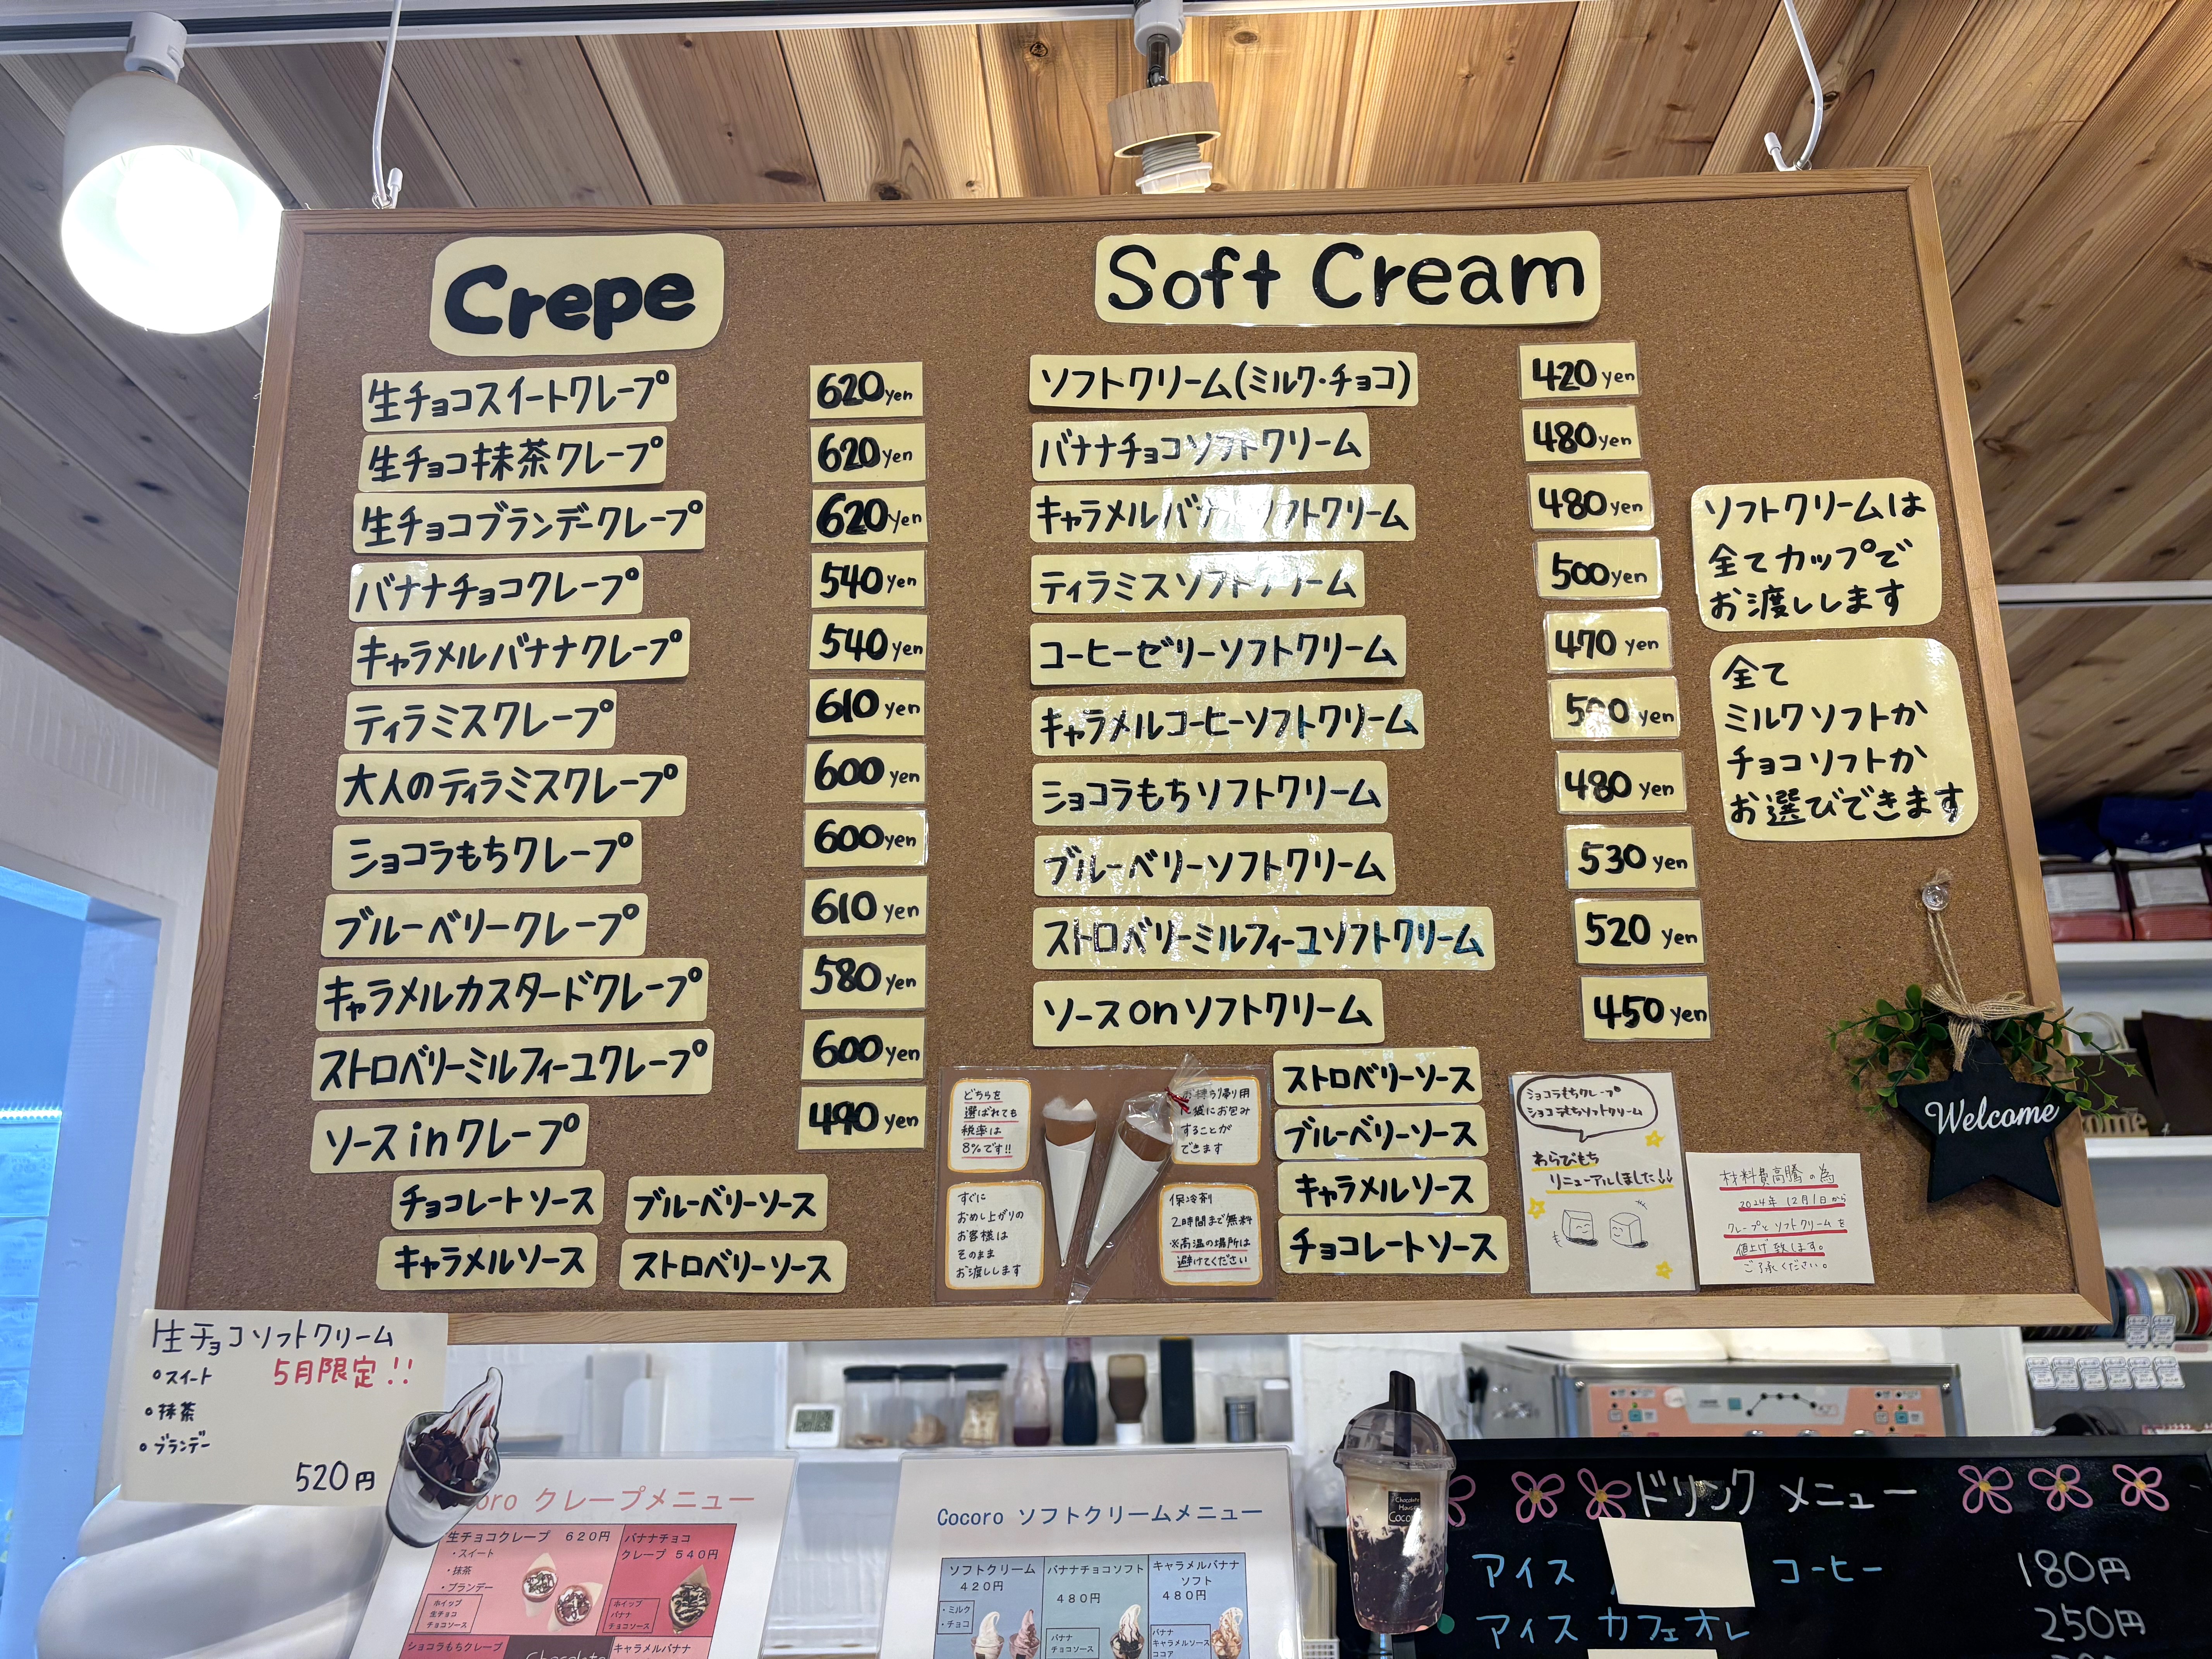 Crepe
生チョコスイートクレープ 620yen
生チョコ抹茶クレープ 620yen
生チョコブランデークレープ 620yen
バナナチョコクレープ 540yen
キャラメルバナナクレープ 540yen
ティラミスクレープ 610yen
大人のティラミスクレープ 600yen
ショコラもちクレープ 600yen
ブルーベリークレープ 610yen
キャラメルカスタードクレープ 580yen
ストロベリーミルフィーユクレープ 600yen
ソースinクレープ 490yen
チョコレートソース ブルーベリーソース
キャラメルソース ストロベリーソース
Soft Cream
ソフトクリーム(ミルク・チョコ) 420yen
バナナチョコソフトクリーム 480yen
キャラメルバナナソフトクリーム 480yen
ティラミスソフトクリーム 500yen
コーヒーゼリーソフトクリーム 470yen
キャラメルコーヒーソフトクリーム 500yen
ショコラもちソフトクリーム 480yen
ブルーベリーソフトクリーム 530yen
ストロベリーミルフィーユソフトクリーム 520yen
ソースonソフトクリーム 450yen
ストロベリーソース
ブルーベリーソース
キャラメルソース
チョコレートソース
ソフトクリームは
全てカップで
お渡しします
全て
ミルクソフトか
チョコソフトか
お選びできます
どちらを
選ばれても
税率は
8%です!!
お持ち帰り用
に袋にお包み
することが
できます
すぐに
おめし上がりの
お客様は
そのまま
お渡しします
保冷剤
2時間まで無料
※高温の場所は
避けてください
ショコラもちクレープ
ショコラもちソフトクリーム
わらびもち
リニューアルしました!!
材料費高騰の為
2024年12月1日から
クレープとソフトクリームを
値上げ致します。
ご了承ください。
Welcome
生チョコソフトクリーム
・スイート 5月限定!!
・抹茶
・ブランデー
520円
oro クレープメニュー
生チョコクレープ 620円
・スイート
・抹茶
・ブランデー
ホイップ
生チョコ
チョコソース
バナナチョコ
クレープ 540円
ホイップ
バナナ
チョコソース
ショコラもちクレープ
キャラメルバナナ
Cocoro ソフトクリームメニュー
ソフトクリーム
420円
・ミルク
・チョコ
バナナチョコソフト
480円
バナナ
チョコソース
キャラメルバナナ
ソフト
480円
バナナ
キャラメルソース
ココア
Chocolate
House
Cocoro
ドリンクメニュー
アイス コーヒー 180円
アイスカフェオレ 250円